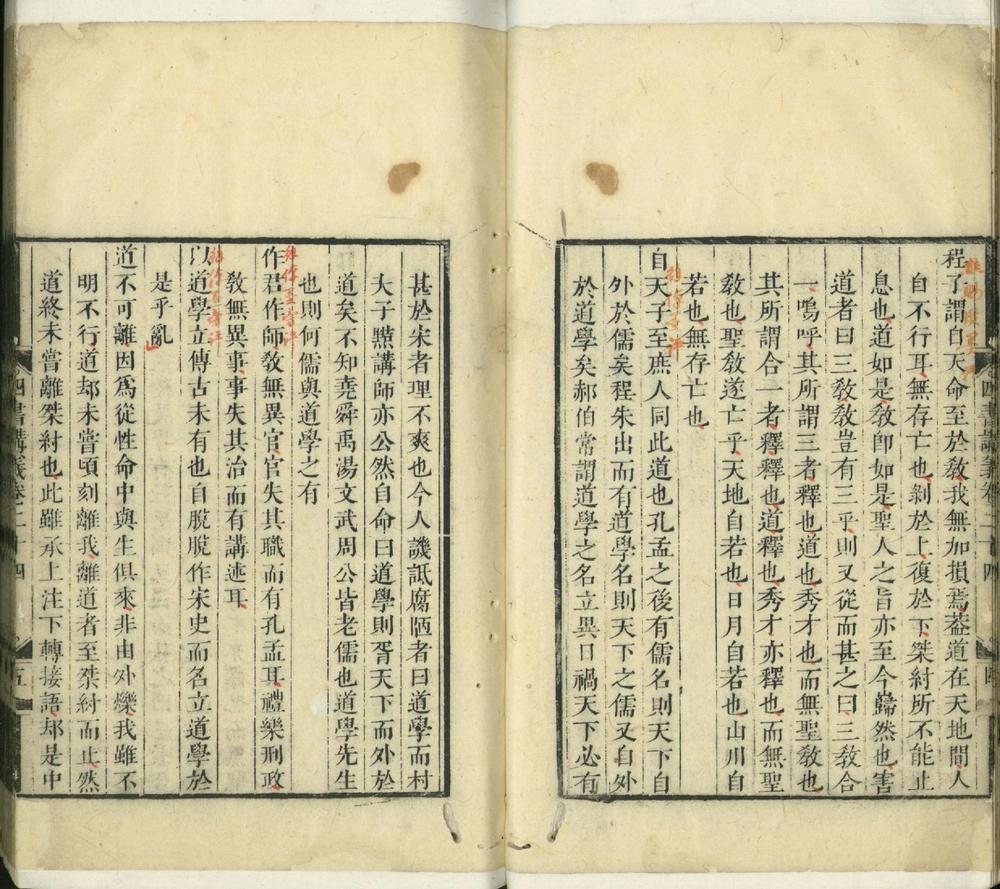 程子謂自天命至於敎我無加損焉葢道在天地間人
自不行耳無存亡也剝於上復於下桀紂所不能止
息也道如是敎卽如是聖人之旨亦至今巋然也害
道者曰三敎敎豈有三乎則又從而甚之曰三敎合
一嗚呼其所謂三者釋也道也秀才也而無聖敎也
其所謂合一者釋釋也道釋也秀才亦釋也而無聖
敎也聖敎遂亡乎天地自若也日月自若也山川自
若也無存亡也
自天子至庶人同此道也孔孟之後有儒名則天下自
外於儒矣程朱出而有道學名則天下之儒又自外
於道學矣郝伯常謂道學之名立異日禍天下必有
四書講義卷二十四
四
甚於宋者理不爽也今人譏詆腐陋者曰道學而村
夫子㸃講師亦公然自命曰道學則胥天下而外於
道矣不知堯舜禹湯文武周公皆老儒也道學先生
也則何儒與道學之有
作君作師敎無異官官失其職而有孔孟耳禮樂刑政
敎無異事事失其治而有講述耳
以道學立傳古未有也自脫脫作宋史而名立道學於
是乎亂
道不可離因爲從性命中與生俱來非由外爍我雖不
明不行道却未嘗頃刻離我離道者至桀紂而止然
道終未嘗離桀紂也此雖承上注下轉接語却是中
四書講義卷二十四
五